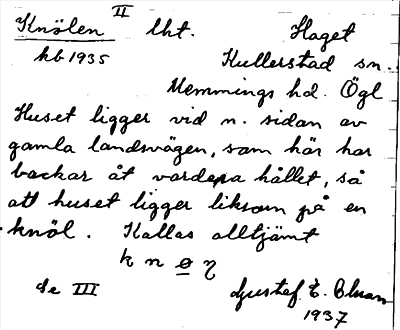 Knölen II lht. Haget
kb 1935 Kullerstad sn.
Memmings hd. Ögl
Huset ligger vid n. sidan av
gamla landsvägen, som här har
backar åt vardera hållet, så
att huset ligger liksom på en
knöl. Kallas alltjämt
k n ø η
de III Gustaf E.
1937